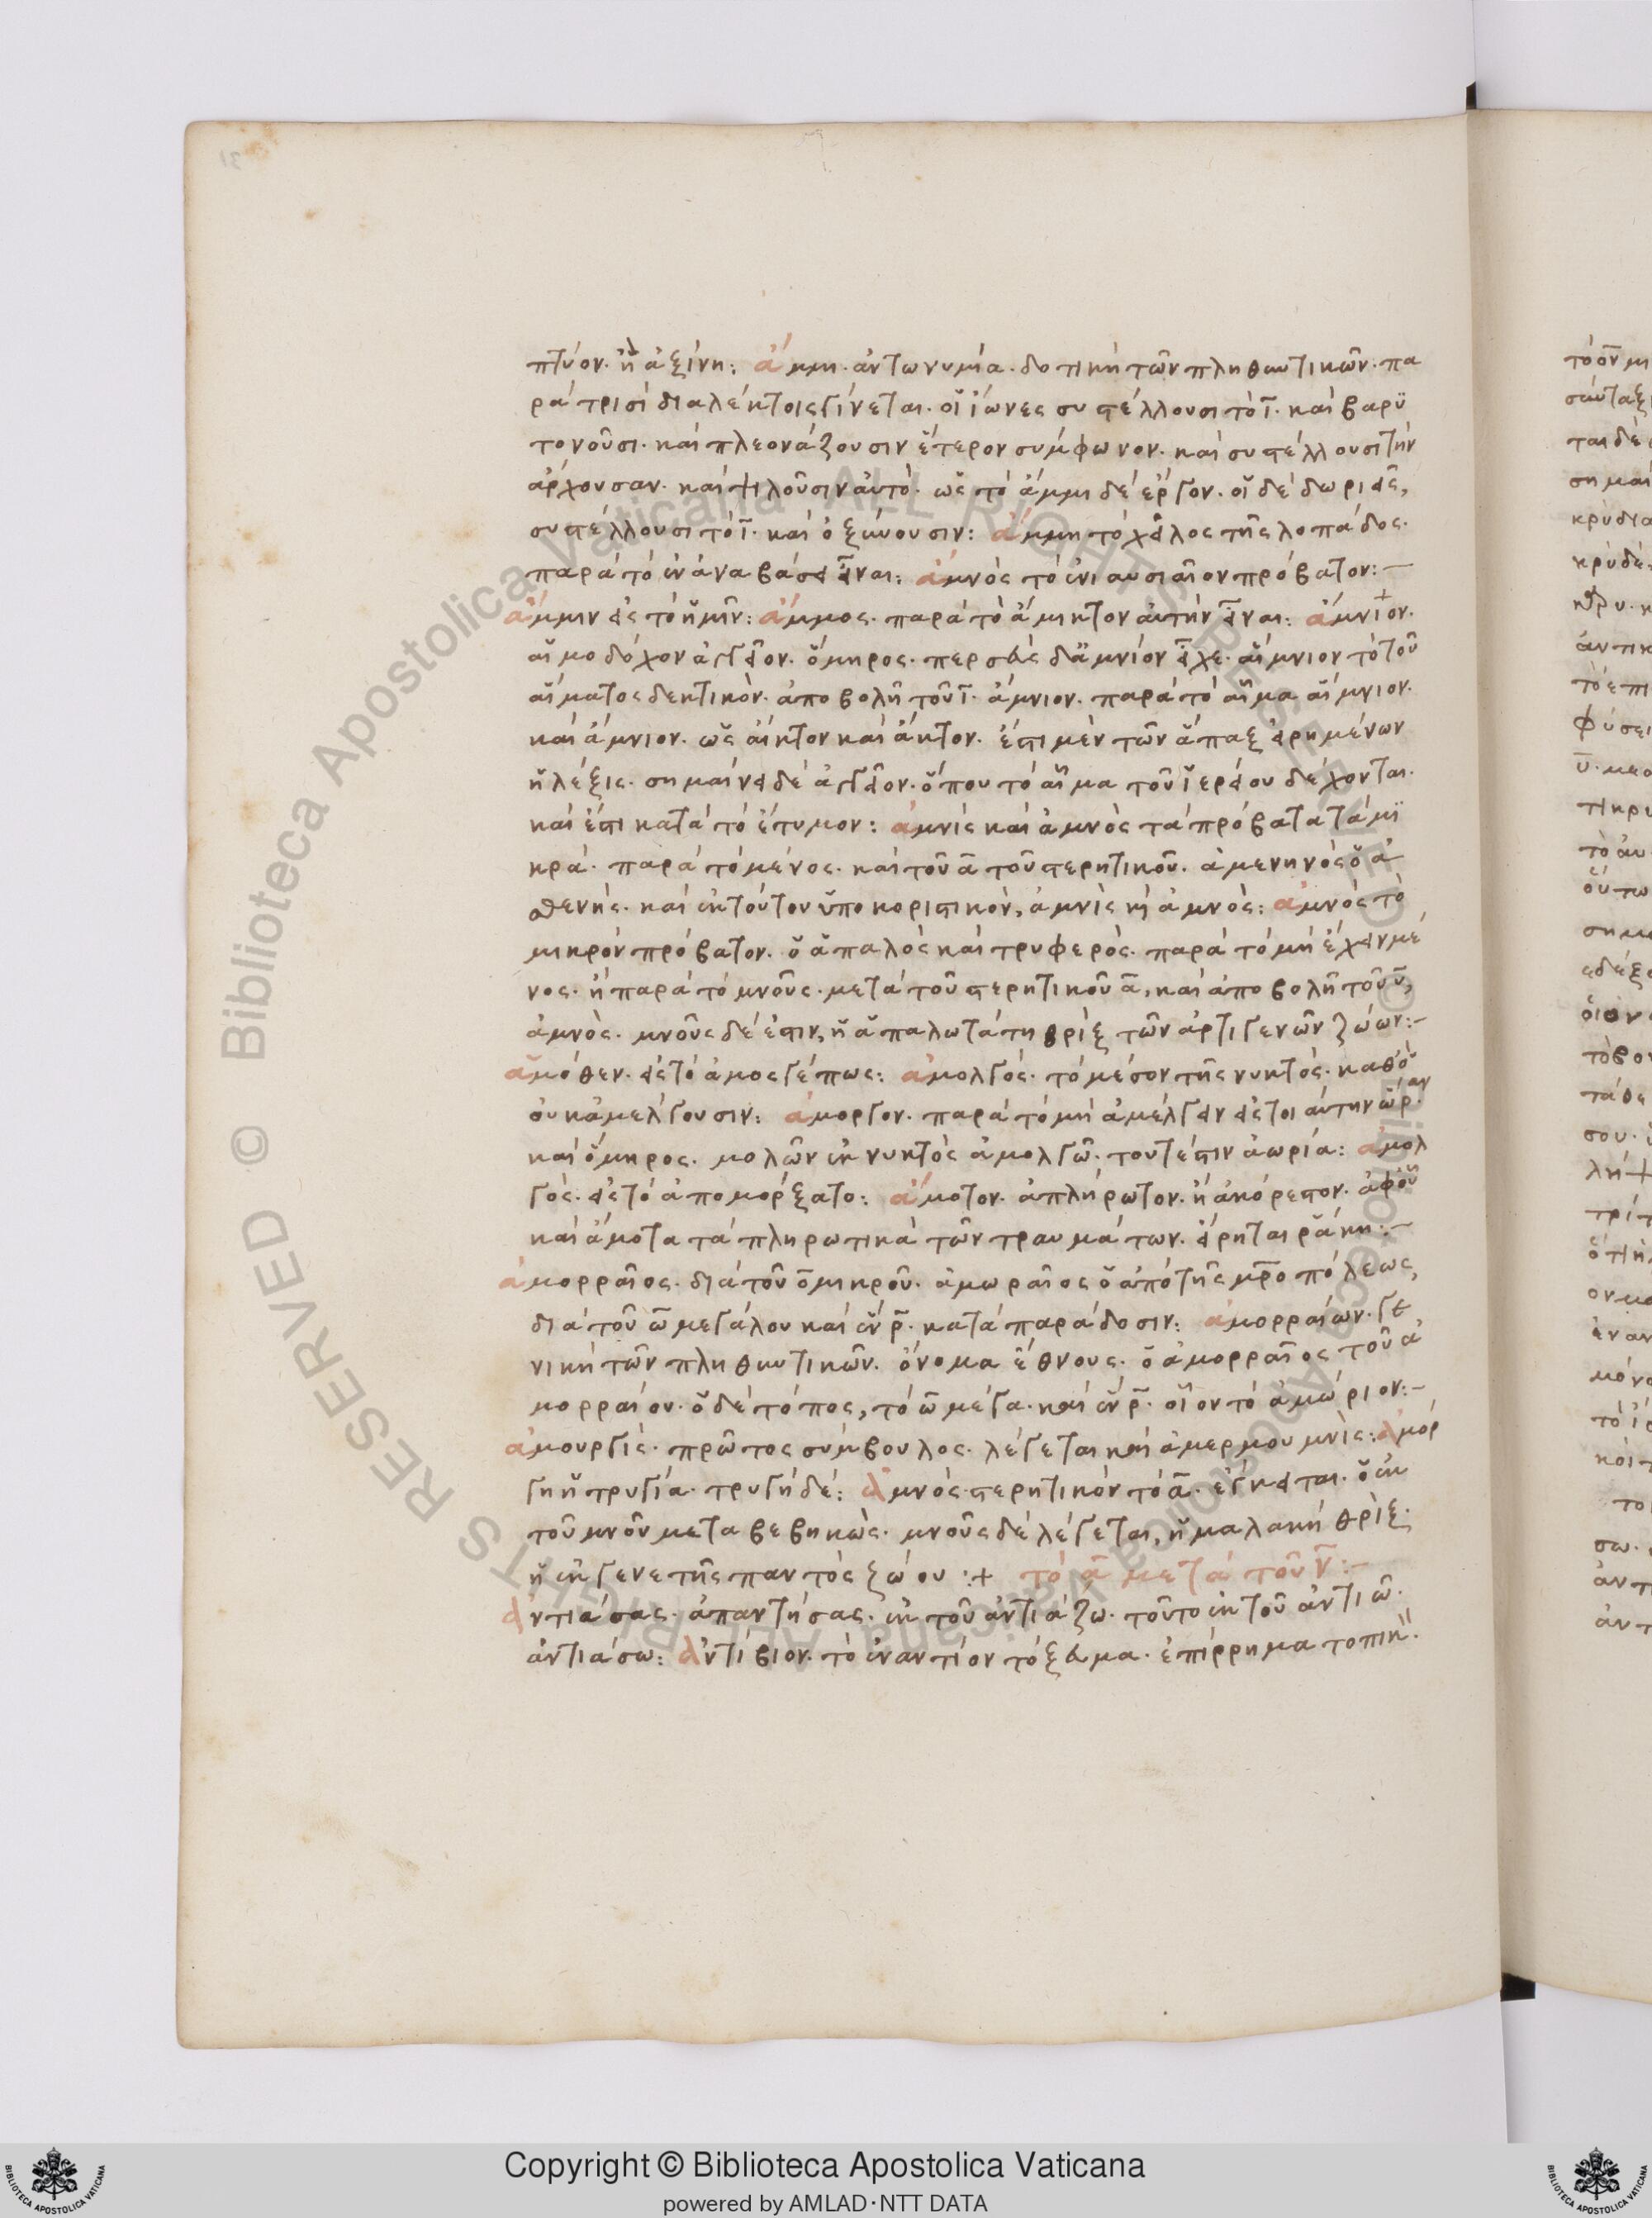 πτύον. ἢ ἀξίνη: ἄμμι. ἀντωνυμία. δοτικὴ τῶν πληθυντικῶν. πα
ρὰ τρισὶ διαλέκτοις γίνεται. οἱ ἴωνες συστέλλουσι τὸ ῑ. καὶ βαρυ
τονοῦσι. καὶ πλεονάζουσιν ἕτερον σύμφωνον. καὶ συστέλλουσι τὴν
ἄρχουσαν. καὶ ψιλοῦσιν αὐτό. ὡς τὸ ἄμμι δὲ ἔργον. οἱ δὲ δωριεῖς,
συστέλλουσι τὸ ῑ. καὶ ὀξύνουσιν: ἄμμη τὸ χεῖλος τῆς λοπάδος.
παρὰ τὸ ἐν ἀναβάσει εἶναι: ἀμνὸς τὸ ἐνιαυσιαῖον πρόβατον:—
ἄμμιν εἰς τὸ ἡμῖν: ἄμμος. παρὰ τὸ ἄμικτον αὐτὴν εἶναι: ἀμνίον.
αἱμοδόχον ἀγγεῖον. ὅμηρος. περσεὺς δ' ἀμνίον εἶχε. αἵμνιον τὸ τοῦ
αἵματος δεκτικόν. ἀποβολῇ τοῦ ῑ. ἄμνιον. παρὰ τὸ αἷμα αἵμνιον.
καὶ ἄμνιον. ὡς αἰητὸν καὶ ἄητον. ἔστι μὲν τῶν ἅπαξ εἰρημένων
ἡ λέξις. σημαίνει δὲ ἀγγεῖον. ὅπου τὸ αἷμα τοῦ ἱερείου δέχονται.
καὶ ἔστι κατὰ τὸ ἔτυμον: ἀμνὶς καὶ ἀμνὸς τὰ πρόβατα τὰ μι
κρά. παρὰ τὸ μένος. καὶ τοῦ ᾱ τοῦ στερητικοῦ. ἀμενηνὸς ὁ ἀ
σθενής. καὶ ἐκ τούτου ὑποκοριστικόν, ἀμνὶς κ(αὶ) ἀμνός: ἀμνὸς τὸ
μικρὸν πρόβατον. ὁ ἁπαλὸς καὶ τρυφερός. παρὰ τὸ μὴ ἔχειν μέ
νος. ἢ παρὰ τὸ μνοῦς. μετὰ τοῦ στερητικοῦ ᾱ, καὶ ἀποβολῇ τοῦ ῡ,
ἀμνός. μνοῦς δέ ἐστιν, ἡ ἁπαλωτάτη θρὶξ τῶν ἀρτιγενῶν ζώων:—
ἀμόθεν. εἰς τὸ ἀμοςγέπως: ἀμολγός. τὸ μέσον τῆς νυκτός. καθ' ὃ
οὐκ ἀμέλγουσιν: ἄμοργον. παρὰ τὸ μὴ ἀμέλγειν εἰς τοιαύτην ὥραν.
καὶ ὅμηρος. μολὼν ἐν νυκτὸς ἀμολγῶ. τουτέστιν ἀωρία: ἀμολ
γός. εἰς τὸ ἀπομόρξατο: ἄμοτον. ἀπλήρωτον. ἢ ἀκόρεστον. ἀφ' οὗ
καὶ ἄμοτα τὰ πληρωτικὰ τῶν τραυμάτων. εἴρηται ῥάκη:—
ἀμορραῖος. διὰ τοῦ ο̄ μικροῦ. ἀμωραῖος ὁ ἀπὸ τῆς μ(ητ)ροπόλεως,
διὰ τοῦ ω̄ μεγάλου καὶ ἓν ρ̄. κατὰ παράδοσιν: ἀμορραίων. γε
νικὴ τῶν πληθυντικῶν. ὄνομα ἔθνους. ὁ ἀμορραῖος τοῦ ἀ
μορραίου. ὁ δὲ τόπος, τὸ ω̄ μέγα. καὶ ἓν ρ̄. οἷον τὸ ἀμώριον:—
ἀμουργίς. πρῶτος σύμβουλος. λέγεται καὶ ἀμερμουμνίς: ἀμόρ
γη ἡ τρυγία. τρυγὴ δέ: ἀμνός. στερητικὸν τὸ ᾱ. ἔγκειται. ὁ ἐκ
τοῦ μνοῦ μεταβεβηκώς. μνοῦς δὲ λέγεται, ἡ μαλακὴ θρίξ.
ἡ ἐκ γενετῆς παντὸς ζώου :+ τὸ ᾱ μετὰ τοῦ ν̄:—
ἀντιάσας. ἀπαντήσας. ἐκ τοῦ ἀντιάζω. τοῦτο ἐκ τοῦ ἀντιῶ.
ἀντιάσω: ἀντίβιον. τὸ ἐναντίον τόξευμα. ἐπίρρημα τοπικ(όν).
Copyright © Biblioteca Apostolica Vaticana
powered by AMLAD·NTT DATA